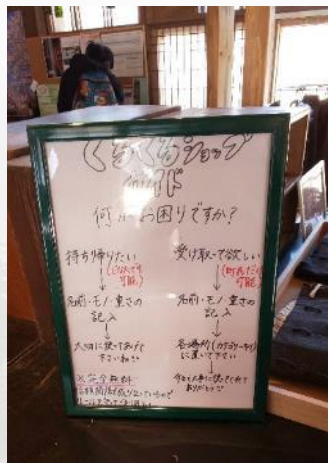 くるくるショップ
ガイド
何かお困りですか?
持ち帰りたい
可能)
名前・モノ・重さの
記入
大切に使ってあげて
下さいね
※完全無料
受け取って欲しい
(町民だけ
可能)
名前・モノ・重さの
記入
各場所(カテゴリーわけ)
に置いて下さい
今まで大事に使ってくれて
ありがとう